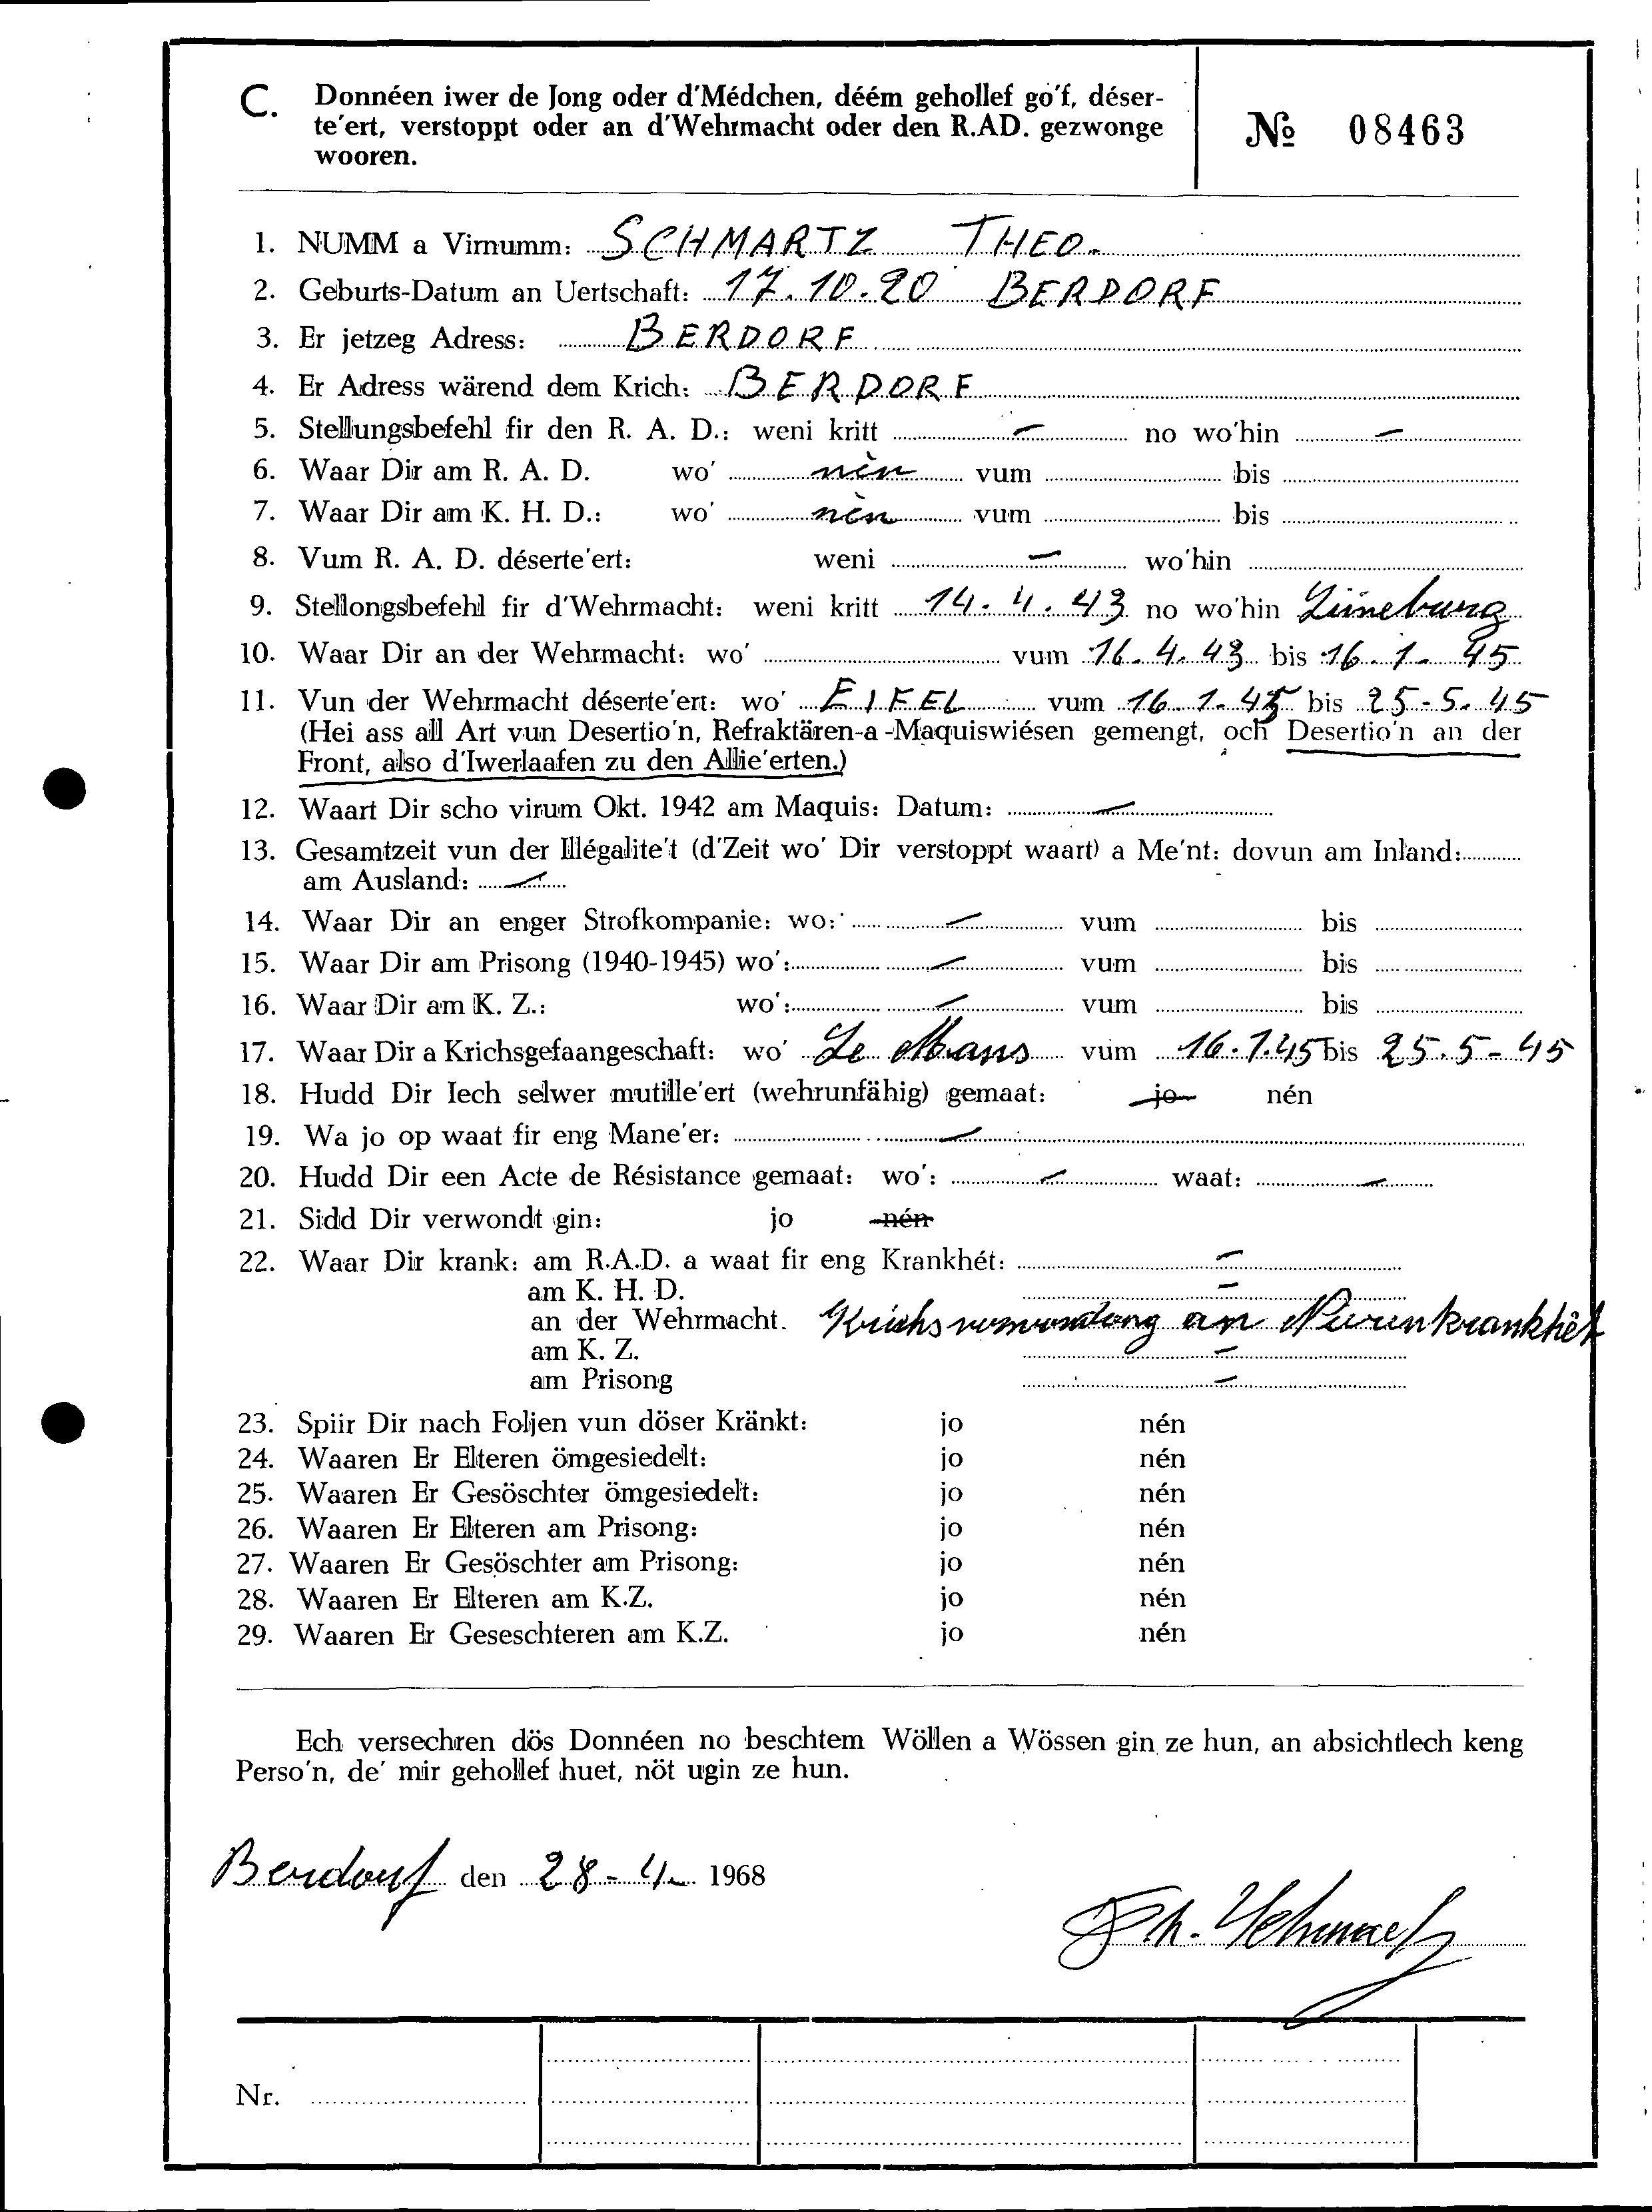 C. Donnéen iwer de Jong oder d'Médchen, déém gehollef go'f, déser-
te'ert, verstoppt oder an d'Wehrmacht oder den R.AD. gezwonge
wooren.
№ 08463
1. NUMM a Virnumm: SCHMARTZ THEO.
2. Geburts-Datum an Uertschaft: 17.10.20 BERDORF
3. Er jetzeg Adress: BERDORF
4. Er Adress wärend dem Krich: BERDORF
5. Stellungsbefehl fir den R. A. D.: weni kritt — no wo'hin —
6. Waar Dir am R. A. D. wo' nèn vum bis
7. Waar Dir am K. H. D.: wo' nèn vum bis
8. Vum R. A. D. déserte'ert: weni — wo'hin
9. Stellongsbefehl fir d'Wehrmacht: weni kritt 14. 4. 43 no wo'hin Lüneburg
10. Waar Dir an der Wehrmacht: wo' vum 16. 4. 43 bis 16. 1. 45
11. Vun der Wehrmacht déserte'ert: wo' EIFEL vum 16. 1. 45 bis 25-5. 45
(Hei ass all Art vun Desertio'n, Refraktären-a -Maquiswiésen gemengt, och Desertio'n an der
Front, also d'Iwerlaafen zu den Allie'erten.)
12. Waart Dir scho virum Okt. 1942 am Maquis: Datum: —
13. Gesamtzeit vun der Illégalite't (d'Zeit wo' Dir verstoppt waart) a Me'nt: dovun am Inland:
am Ausland: —
14. Waar Dir an enger Strofkompanie: wo:' — vum bis
15. Waar Dir am Prisong (1940-1945) wo': — vum bis
16. Waar Dir am K. Z.: wo': — vum bis
17. Waar Dir a Krichsgefaangeschaft: wo' Le Mans vum 16.1.45 bis 25.5-45
18. Hudd Dir Iech selwer mutille'ert (wehrunfähig) gemaat: jo nén
19. Wa jo op waat fir eng Mane'er: —
20. Hudd Dir een Acte de Résistance gemaat: wo': — waat: —
21. Sidd Dir verwondt gin: jo nén
22. Waar Dir krank: am R.A.D. a waat fir eng Krankhét: —
am K. H. D. —
an der Wehrmacht. Krichsverwondung an Nierenkrankhét
am K. Z. —
am Prisong —
23. Spiir Dir nach Foljen vun döser Kränkt: jo nén
24. Waaren Er Elteren ömgesiedelt: jo nén
25. Waaren Er Gesöschter ömgesiedelt: jo nén
26. Waaren Er Elteren am Prisong: jo nén
27. Waaren Er Gesöschter am Prisong: jo nén
28. Waaren Er Elteren am K.Z. jo nén
29. Waaren Er Geseschteren am K.Z. jo nén
Ech versechren dös Donnéen no beschtem Wöllen a Wössen gin ze hun, an absichtlech keng
Perso'n, de' mir gehollef huet, nöt ugin ze hun.
Berdorf den 28-4. 1968
Th. Schmartz
Nr.